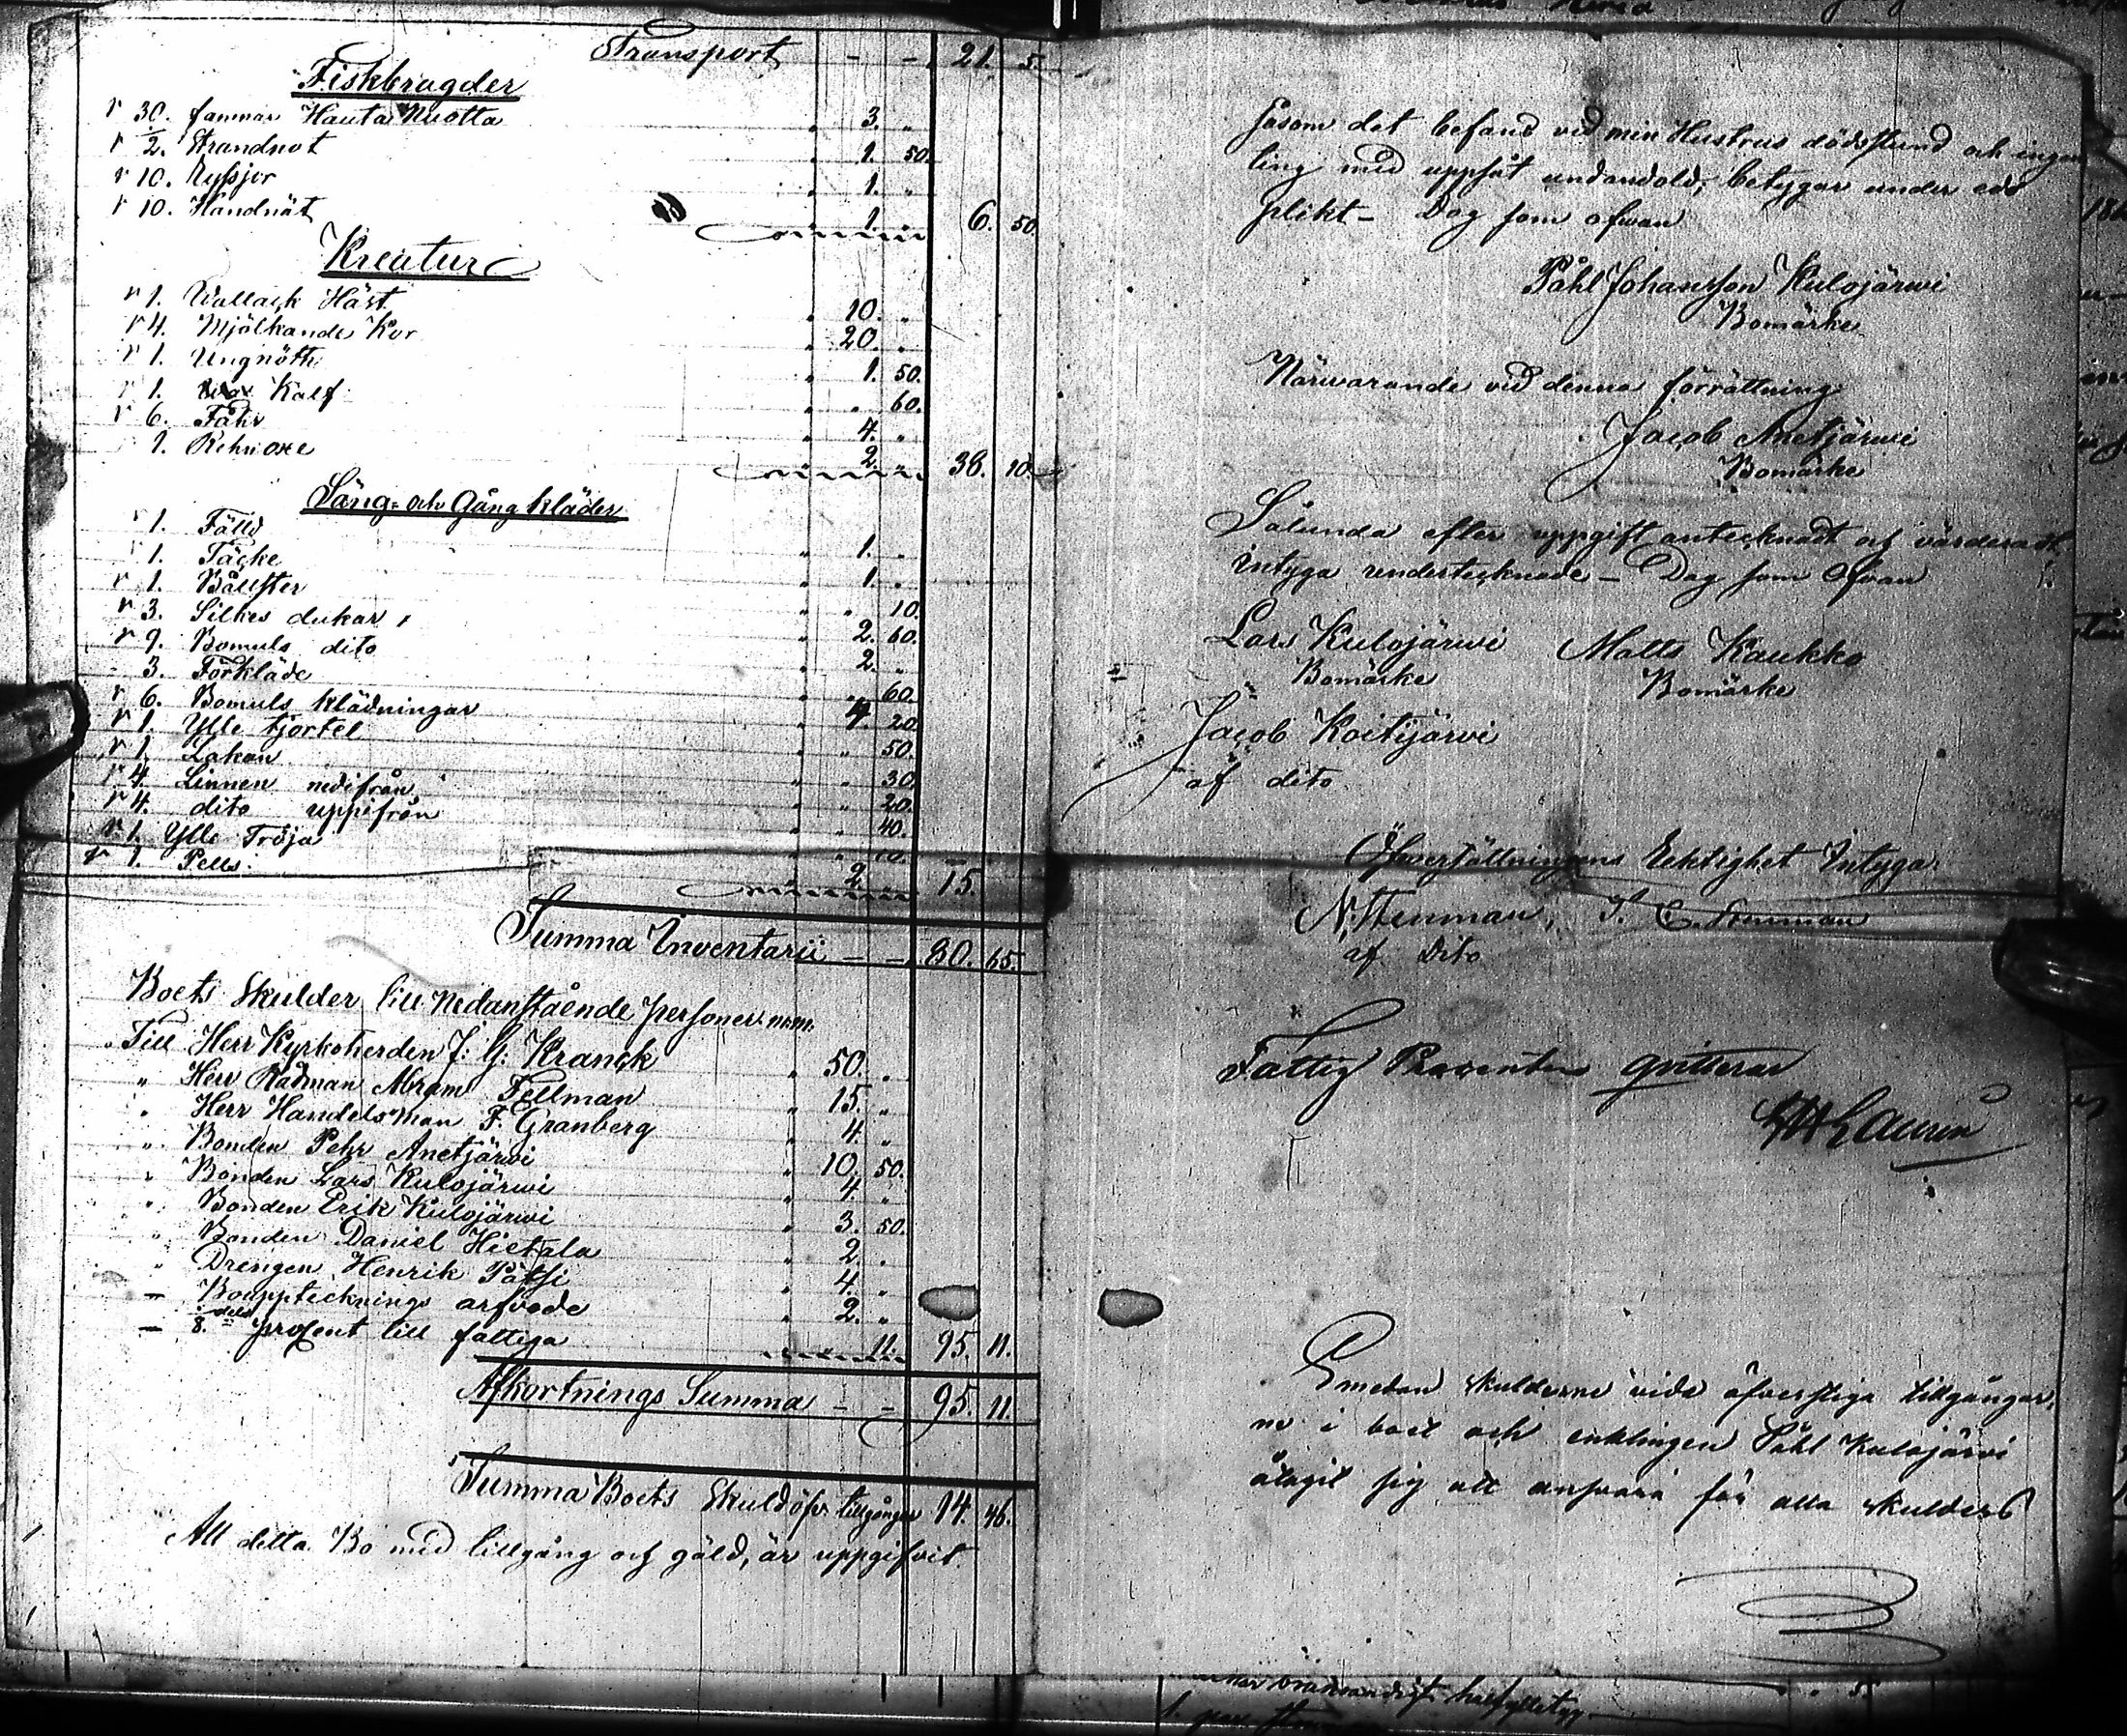 Transport - - 21. 5.
Fiskbragder
30. famnar Hauta Nuotta " 3. "
2. Strandnot " 1. 50.
10. Ryssjor " 1. "
10. Handnät " 1. " 6. 50.
Kreatur
1. Wallack Häst " 10. "
4. Mjölkande Kor " 20. "
1. Ungnöth " 1. 50.
1. Kalf " " 60.
6. Fåhr " 4. "
1. Rehn oxe " 2. " 38. 10.
Säng- och Gång kläder
1. Fälld " 1. "
1. Täcke " 1. "
1. Bållster " " 10.
3. Silkes dukar " 2. 60.
9. Bomuls dito " 2. "
3. Förkläde " " 60.
6. Bomuls klädningar " 7. 20
1. Ylle tjortel " " 50.
1. Lakan " " 30.
4. Linnen nedifrån " " 20.
4. dito uppifrån " " 40.
1. Ylle Tröja " "
1. Pells. " 2. " 15.
Summa Inventarii - - 80. 65.
Boets Skulder till nedanstående personer n:m.
Till Herr Kyrkoherden J: G: Kranck " 50. "
" Herr Rådman Abram Fellman " 15. "
" Herr Handelsman F. Granberg " 4. "
" Bonden Pehr Anetjärwi " 10. 50.
" Bonden Lars Kulojärwi " 4. "
" Bonden Erik Kulojärwi " 3. 50.
" Bonden Daniel Hietala " 2. "
" Drengen Henrik Pätsi " 4. "
— Bouppteckningsarfvode " 2. "
— 8.dels procent till fattiga 11. 95. 11.
Afkortnings Summa - - 95. 11.
Summa Boets Skuld öfv. tillgången 14. 46.
All detta Bo med tillgång och gäld, är uppgifvit
såsom det befans vid min Hustrus dödsstund och ingen
ting med uppsåt undandold; betygar under eds
plikt - Dag som ofwan
Påhl Johansson Kulojärwi
Bomärke
Närwarande vid denna förrättning
Jacob Anetjärwi
Bomärke
Sålunda efter uppgift antecknadt och värderadt,
intyga undertecknade - Dag som Ofwan
Lars Kulojärwi Matts Kaukko
Bomärke Bomärke
Jacob Koitijärvi
af dito
Öfwersättningens Ricktighet Intyga
N. Stenman, E. Stenman
af Dito
Fattig Procenten qvitteras
Laurin
Emedan skulderne vida öfverstiga tillgångar,
ne i boet och enklingen Påhl Kulojärvi
åtagit sig att ansvara för alla skulders